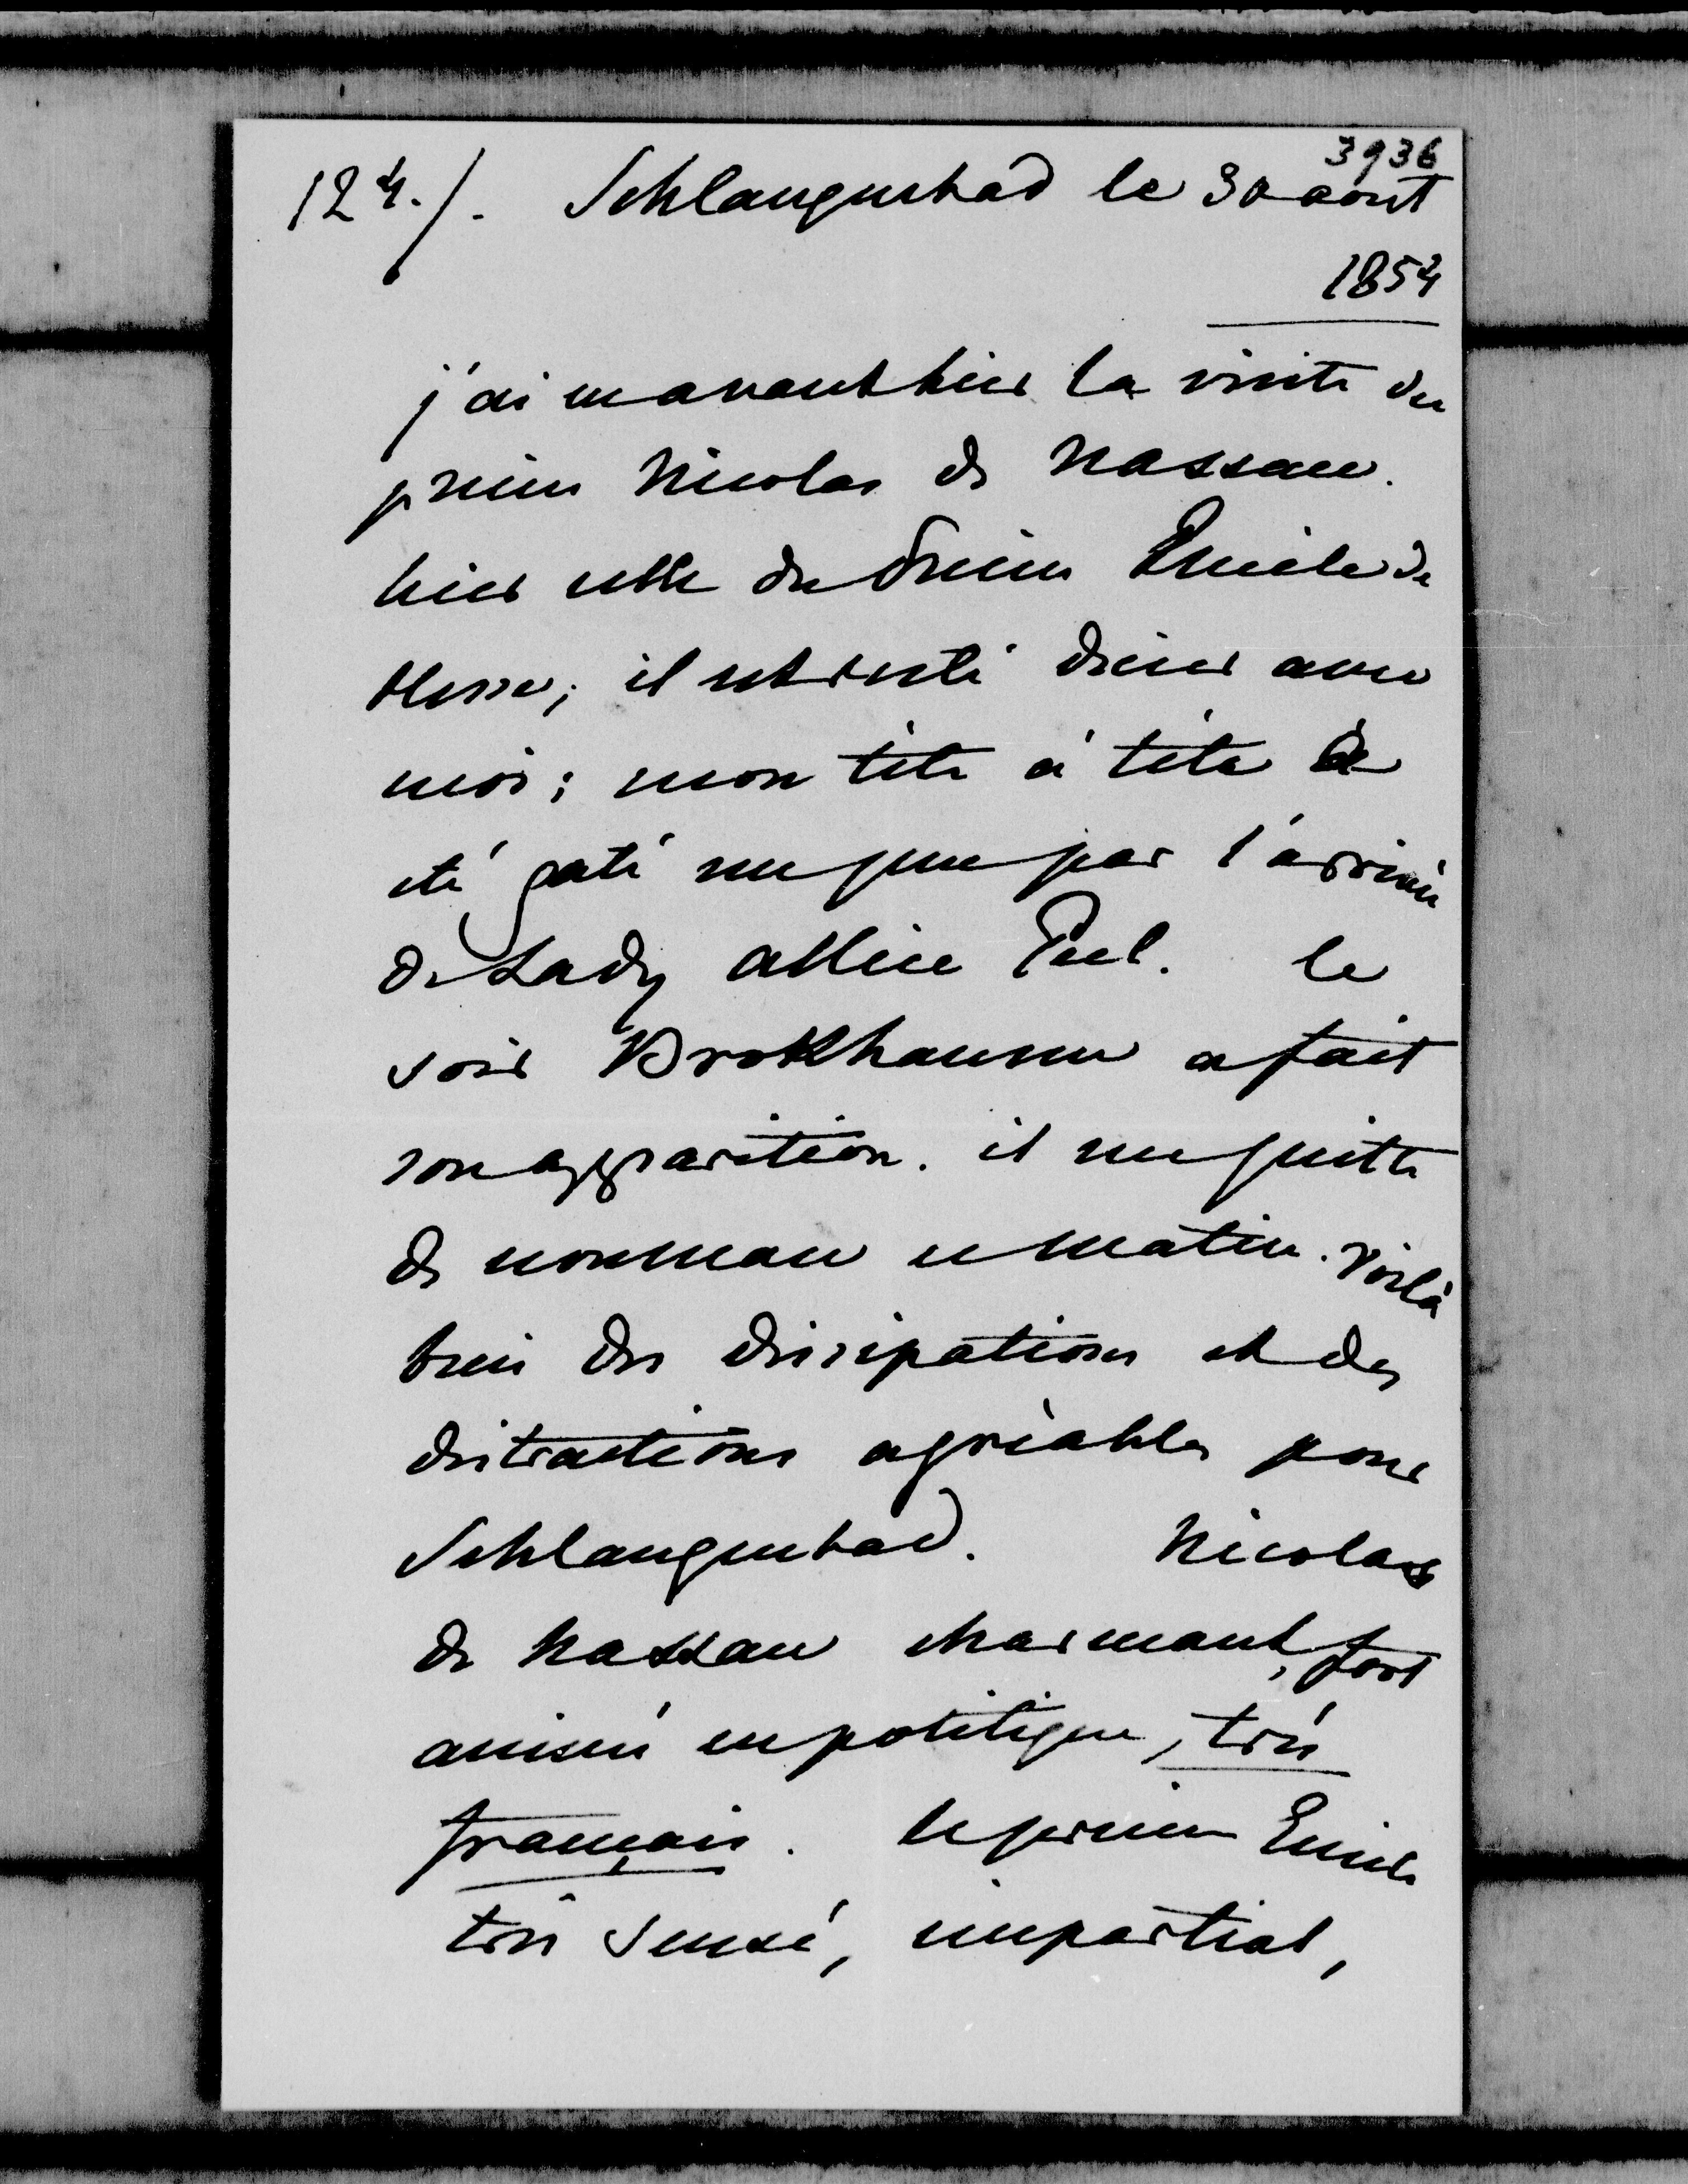 3936
124./. Schlangenbad le 30 aout
1854
j'ai eu avant hier la visite du
prince Nicolas de Nassau.
hier celle du Prince Emile de
Hesse; il est resté diner avec
moi; mon tête à tête a
été gaté un peu par l'arrivée
de Lady Allice Peel. le
soir Brokhausen a fait
son apparition. il me quitte
de nouveau ce matin. voilà
bien des dissipations et des
distractions agréables pour
Schlangenbad. Nicolas
de Nassau charmant, fort
animé en politique, très
français. le prince Emile
très sensé, impartial,